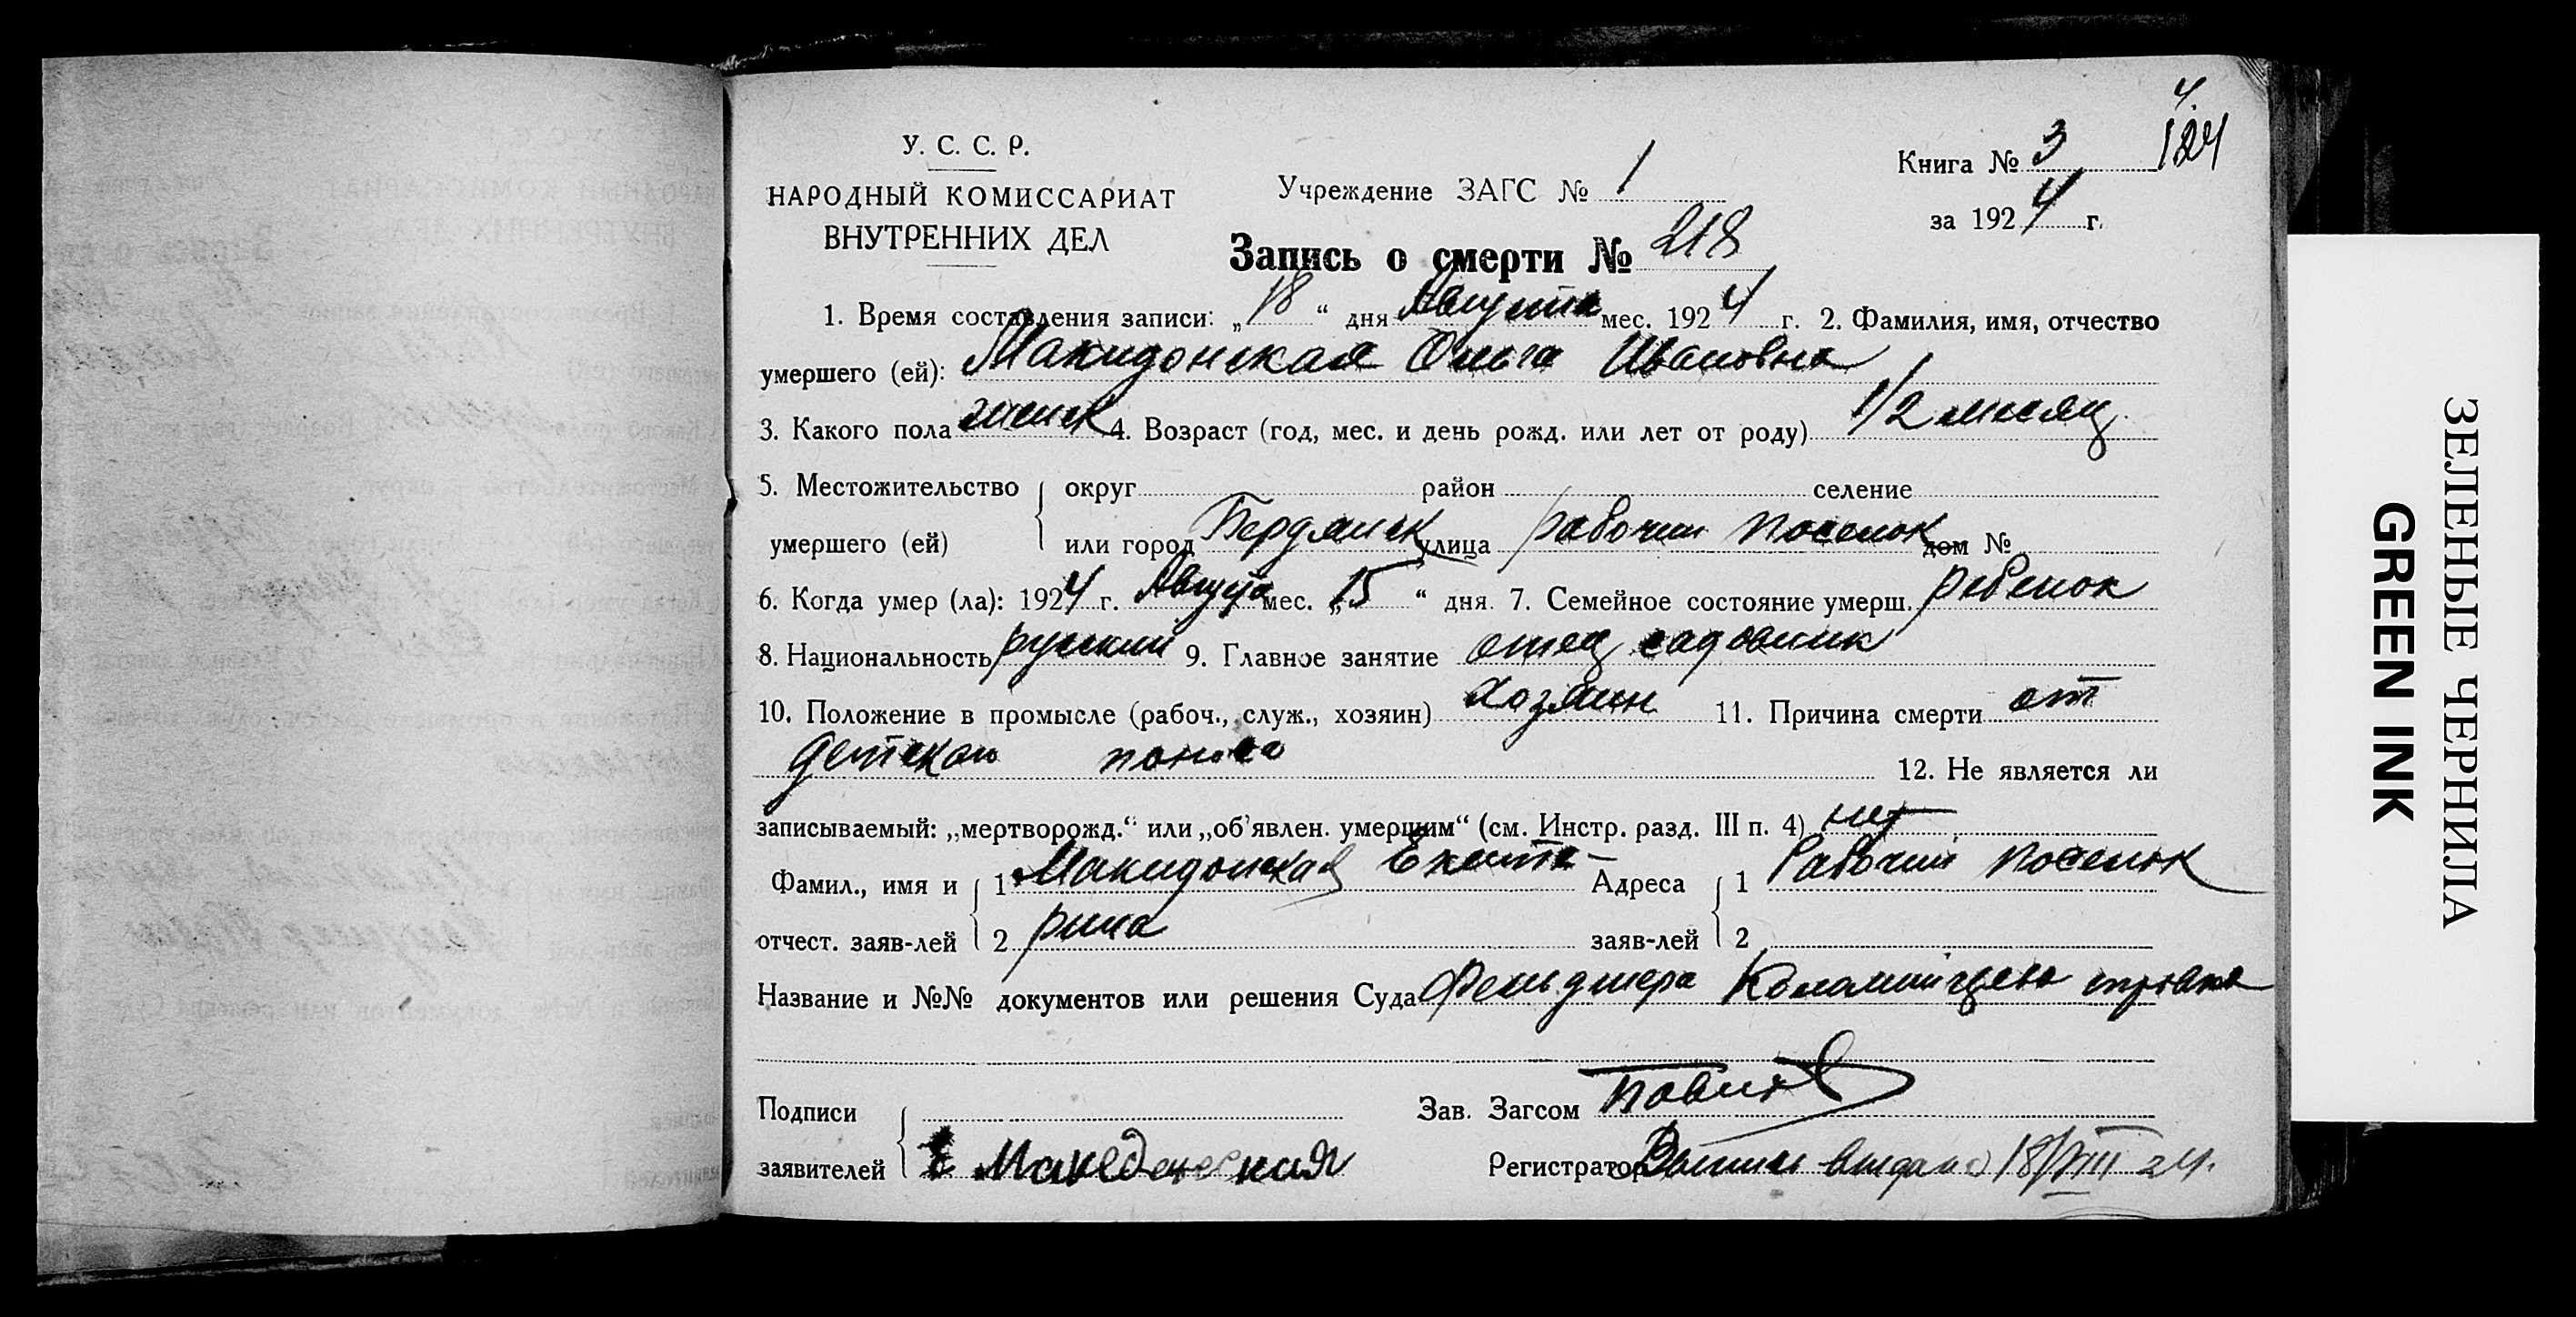 4.
124
У. С. С. Р.
НАРОДНЫЙ КОМИССАРИАТ
ВНУТРЕННИХ ДЕЛ
Учреждение ЗАГС № 1
Книга № 3
за 1924 г.
Запись о смерти № 218
1. Время составления записи: „18“ дня Августа мес. 1924 г. 2. Фамилия, имя, отчество
умершего (ей): Макидонская Ольга Ивановна
3. Какого пола женск 4. Возраст (год, мес. и день рожд. или лет от роду) 1/2 месяц
5. Местожительство округ район селение
умершего (ей) или город Бердянск улица рабочий поселок дом №
6. Когда умер (ла): 1924 г. Августа мес. „15“ дня. 7. Семейное состояние умерш. ребенок
8. Национальность русский 9. Главное занятие отец садовник
10. Положение в промысле (рабоч., служ., хозяин) хозяин 11. Причина смерти от
детском поноса
12. Не является ли
записываемый: „мертворожд.“ или „об’явлен. умершим“ (см. Инстр. разд. III п. 4) нет
Фамил., имя и 1 Макидонская Екате- Адреса 1 Рабочий поселок
отчест. заяв-лей 2 рина заяв-лей 2
Название и №№ документов или решения Суда Фельдшера
Подписи
Зав. Загсом
заявителей Е Македонская Регистратор выдана 18/VIII 24.
ЗЕЛЕНЫЕ ЧЕРНИЛА
GREEN INK